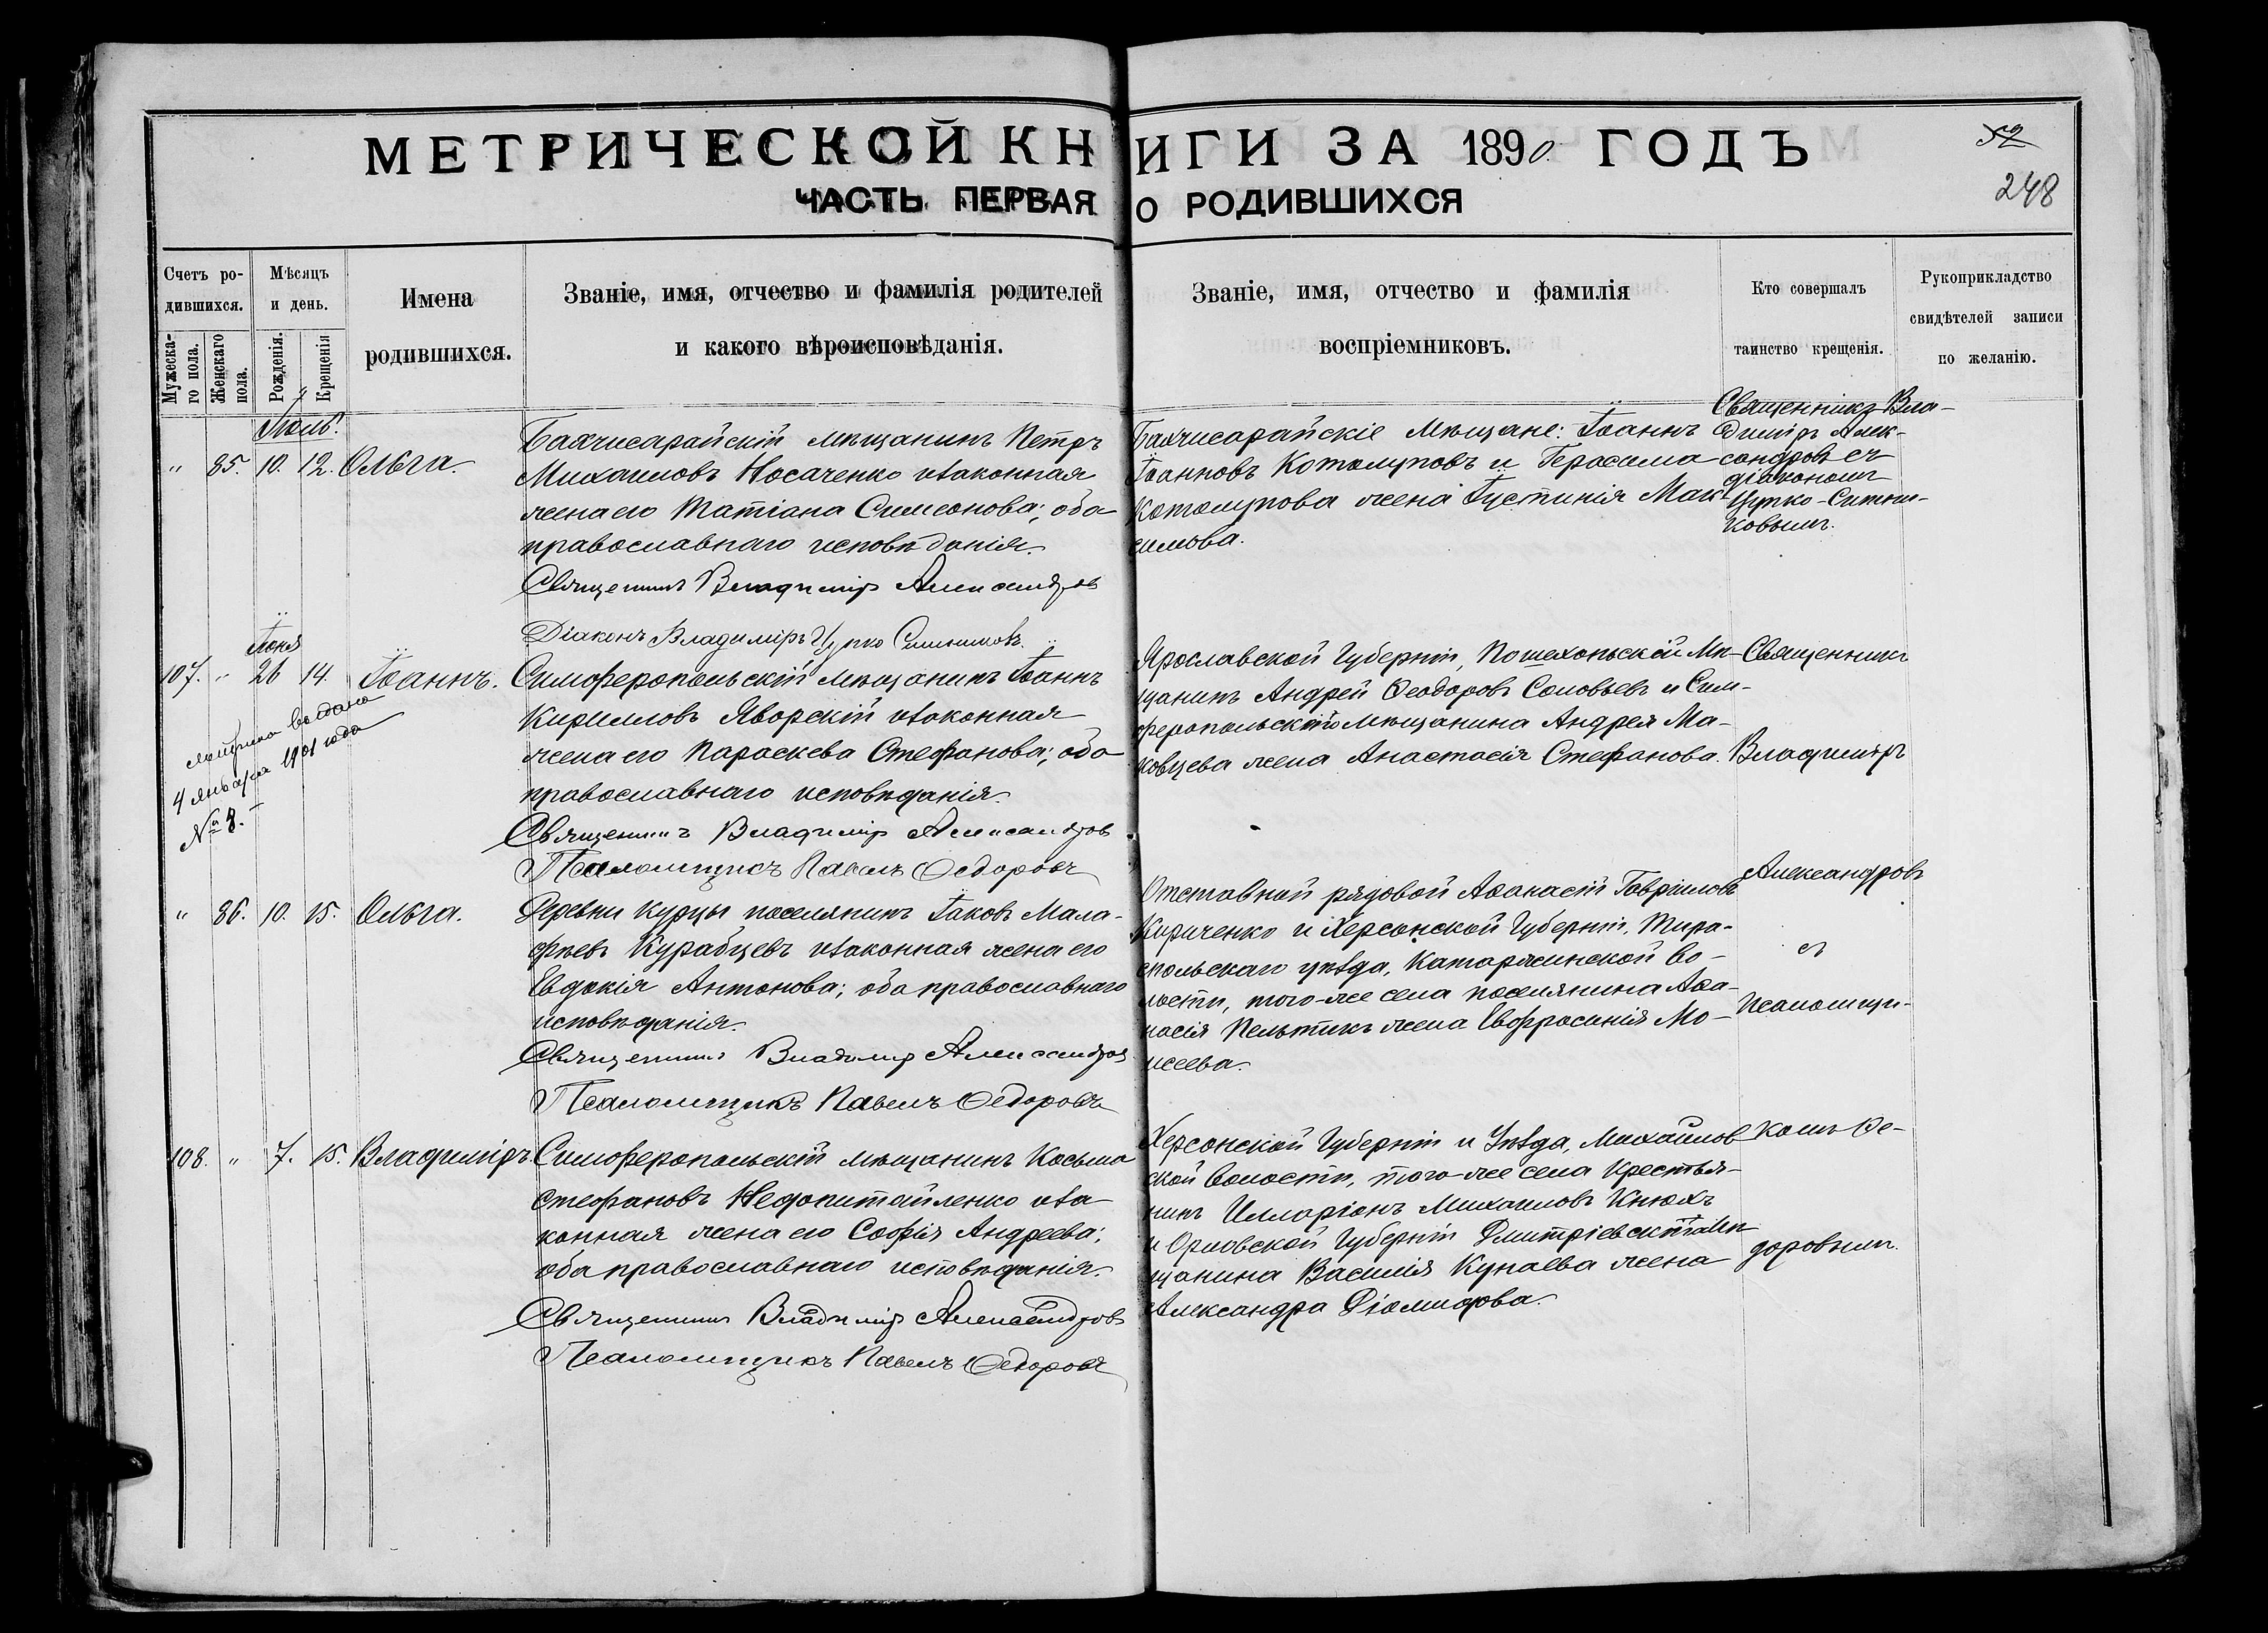 МЕТРИЧЕСКОЙ КНИГИ ЗА 1890. ГОДЪ
52
248
ЧАСТЬ ПЕРВАЯ О РОДИВШИХСЯ
Счетъ ро-
дившихся.
Мужеска-
го пола.
Женскаго
пола.
Мѣсяцъ
и день.
Рожденія.
Крещенія
Имена
родившихся.
Званіе, имя, отчество и фамилія родителей
и какого вѣроисповѣданія.
Званіе, имя, отчество и фамилія
воспріемниковъ.
Кто совершалъ
таинство крещенія.
Рукоприкладство
свидѣтелей записи
по желанію.
Іюль.
" 85. 10. 12. Ольга.
Бахчисарайскій мѣщанинъ Петръ
Михаиловъ Носаченко и законная
жена его Татіана Симеонова; оба
православнаго исповѣданія.
Священникъ Владиміръ Александровъ
Діаконъ Владиміръ
Бахчисарайскіе Мѣщане: Іоаннъ
Іоанновъ Котолуповъ и Герасима
Котолупова жена Іустинія Мак-
симова.
Священникъ Вла-
диміръ Алек-
сандровъ съ
діакономъ
Цупко-Ситни-
ковымъ.
Іюня
107. " 26 14. Іоаннъ.
Метрика выдана
4 января 1901 года
№ 8.
Симферопольскій мѣщанинъ Іоаннъ
Кирилловъ Яворскій и законная
жена его Параскева Стефанова; оба
православнаго исповѣданія.
Священникъ Владиміръ Александровъ
Псаломщикъ Павелъ Ѳедоровъ
Ярославской Губерніи, Пошехоньскій Мѣ-
щанинъ Андрей Ѳеодоровъ Соловьевъ и Сим-
феропольскаго мѣщанина Андрея Ма-
ковцева жена Анастасія Стефанова.
Священникъ
Владиміръ
" 86. 10. 15. Ольга.
Деревни Курцы поселянинъ Іаковъ Мала-
фѣевъ Курабцевъ и законная жена его
Евдокія Антонова; оба православнаго
исповѣданія.
Священникъ Владиміръ Александровъ
Псаломщикъ Павелъ Ѳедоровъ
Отставной рядовой Аѳанасій Гавріиловъ
Кириченко и Херсонской Губерніи, Тира-
спольскаго уѣзда, Катаржинской во-
лости, того-же села поселянина Аѳа-
насія Пельтикъ жена Евфросинія Мо-
исеева.
Александровъ
съ
Псаломщи-
108. " 7. 15. Владиміръ.
Симферопольскій мѣщанинъ Косьма
Стефановъ Недопитайленко и за-
конная жена его Софія Андреева;
оба православнаго исповѣданія.
Священникъ Владиміръ Александровъ
Псаломщикъ Павелъ Ѳедоровъ
Херсонской Губерніи и Уѣзда, Михайлов-
ской Волости, того-же села Крестья-
нинъ Илларіонъ Михаиловъ Кнюхъ
и Орловской Губерніи Дмитріевскаго Мѣ-
щанина Василія Купаева жена
Александра Діомидова.
комъ Ѳе-
доровымъ.